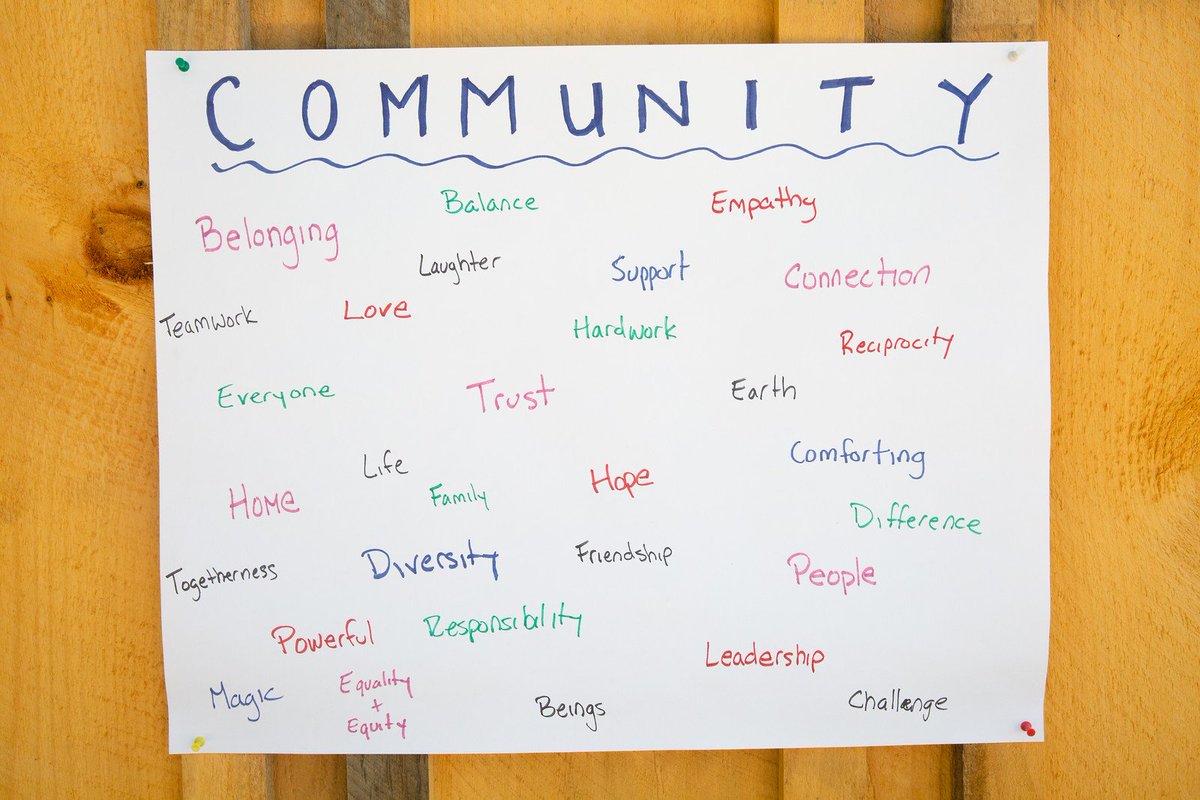 COMMUNITY
Balance
Empathy
Belonging
Laughter
Support
Connection
Teamwork
Love
Hardwork
Reciprocity
Everyone
Trust
Earth
Life
Comforting
Home
Family
Hope
Difference
Togetherness
Diversity
Friendship
People
Powerful
Responsibility
Leadership
Magic
Equality
+
Equity
Beings
Challenge